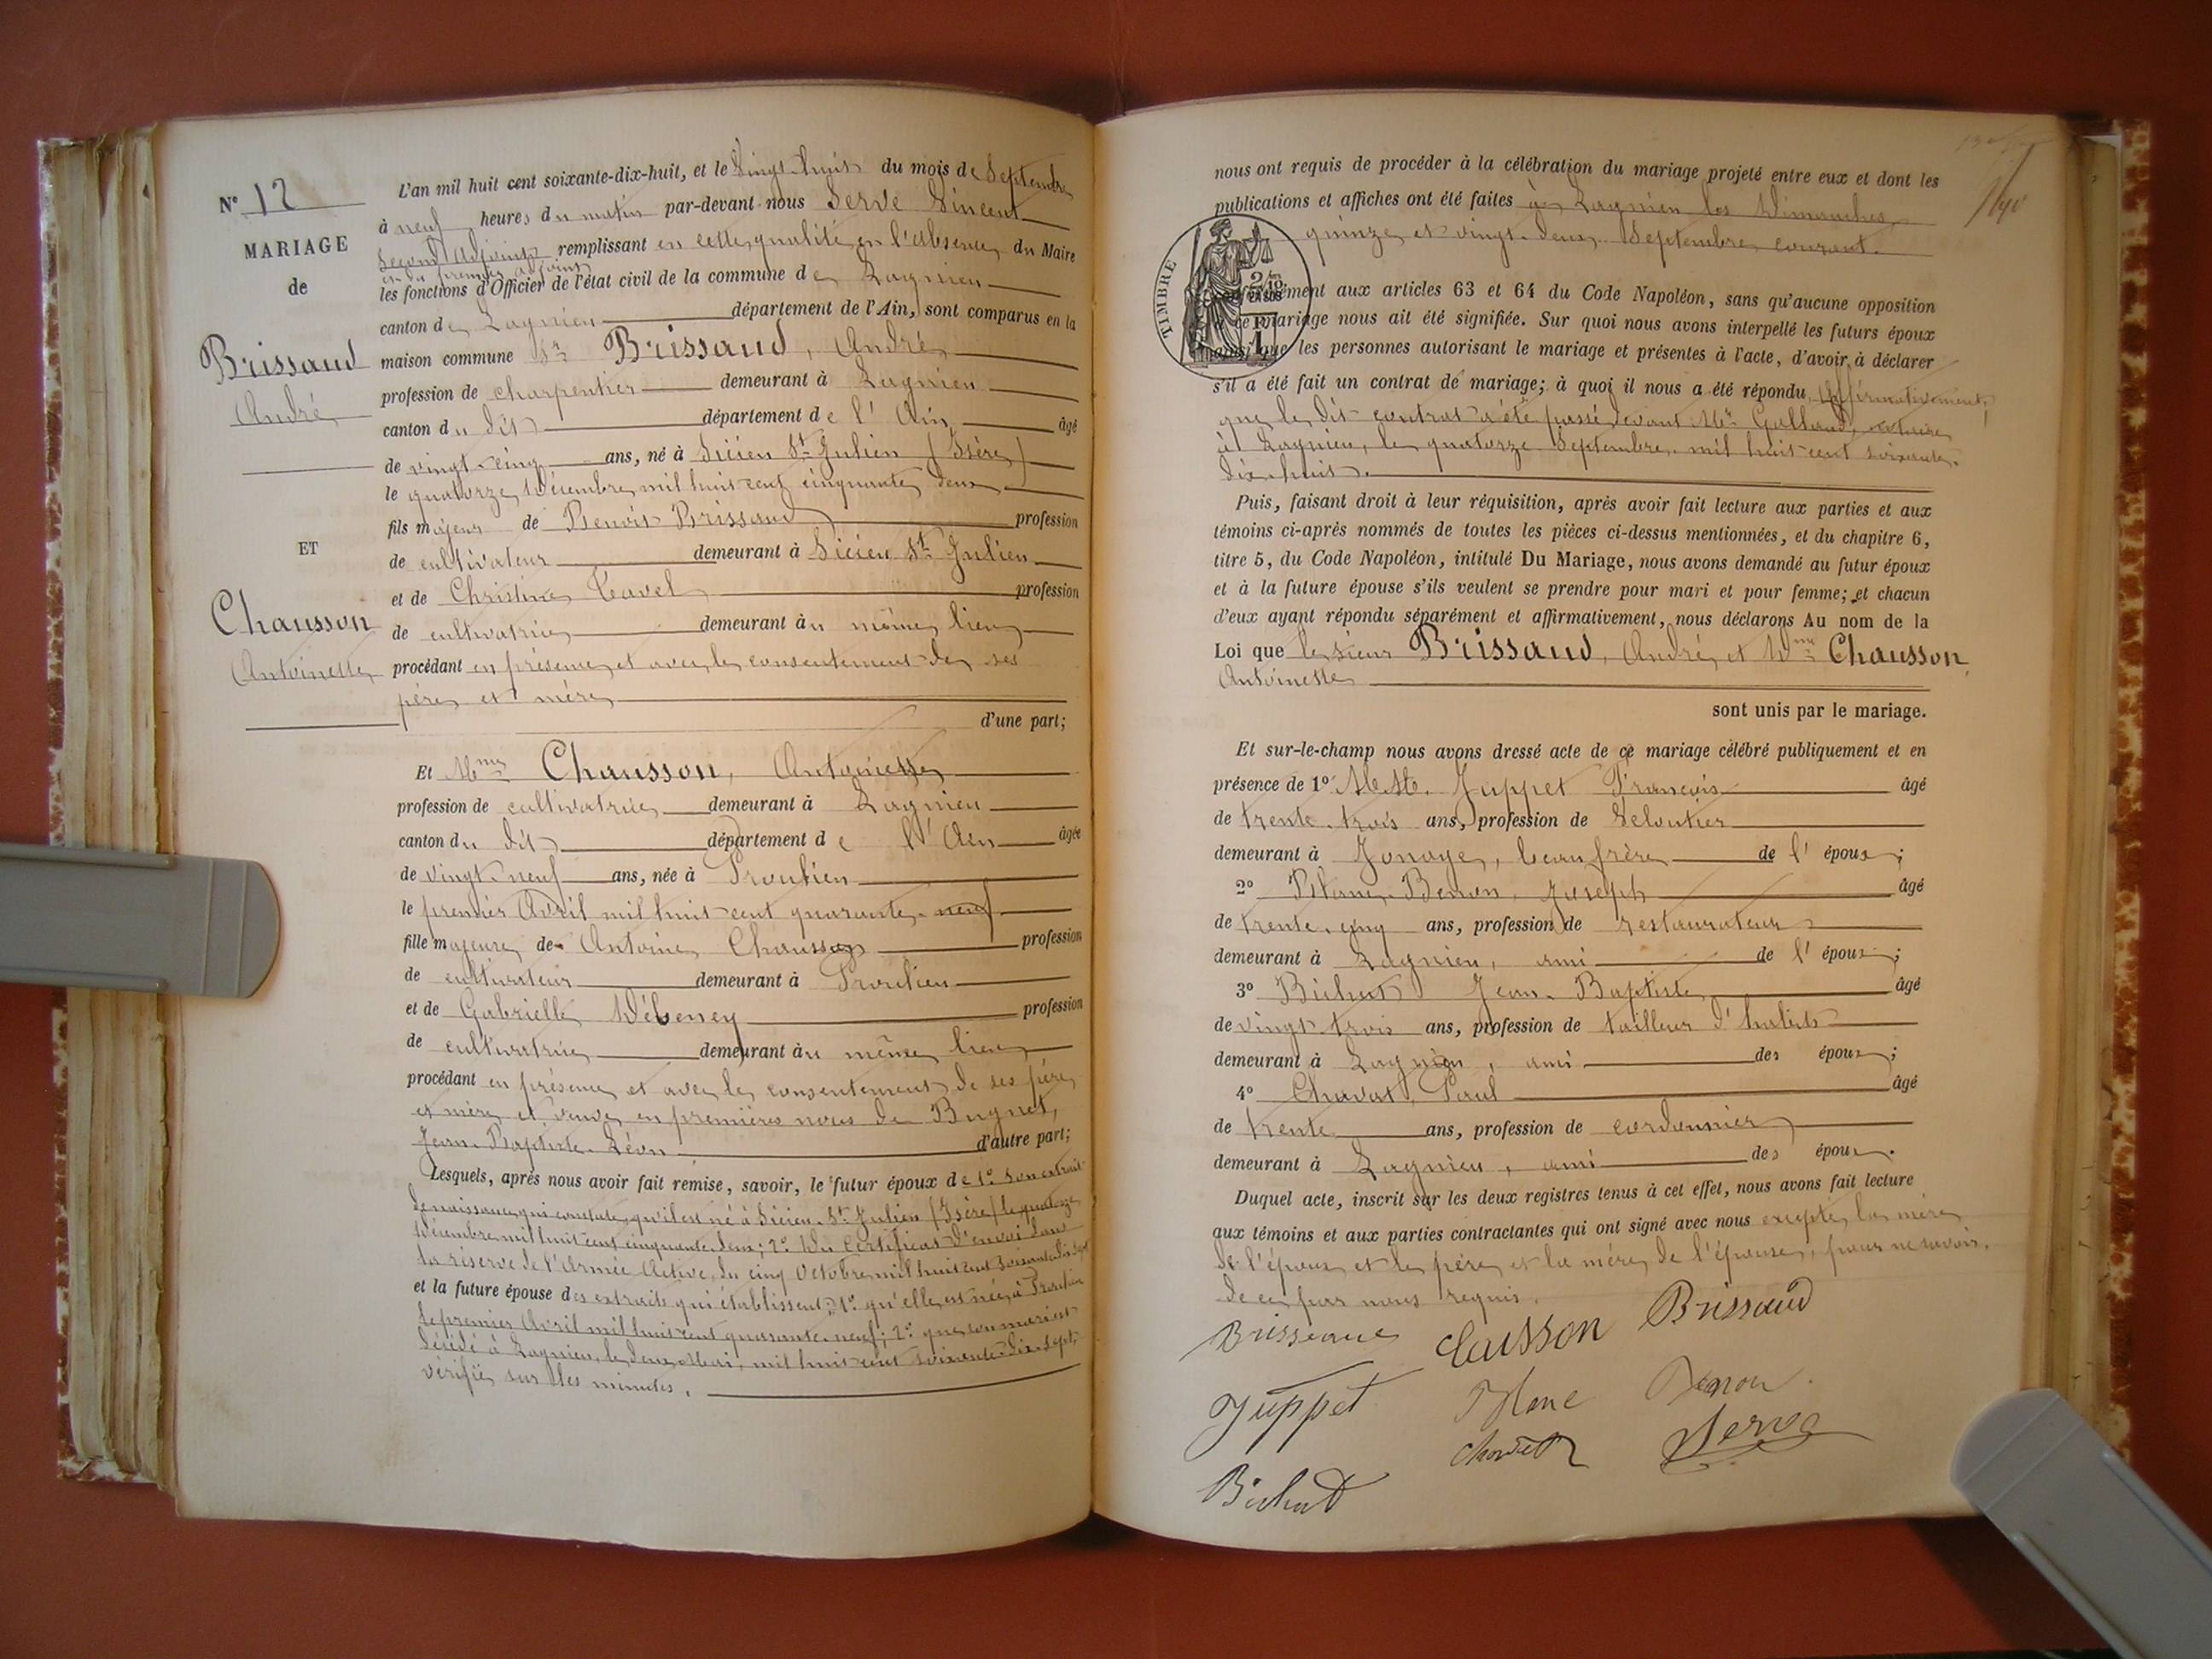 N° 12
MARIAGE
de
Brissaud
André
ET
Chausson
Antoinette
L'an mil huit cent soixante-dix-huit, et le vingt-huit du mois de Septembre
à neuf heures du matin par-devant nous Serve Vincent
second adjoint remplissant en cette qualité en l'absence du Maire
et du premier adjoint
les fonctions d'Officier de l'état civil de la commune de Lagnieu
canton de Lagnieu département de l'Ain, sont comparus en la
maison commune Sr Brissaud, André
profession de charpentier demeurant à Lagnieu
canton du dit département de l'Ain âgé
de vingt-cinq ans, né à Siccieu St Julien (Isère)
le quatorze Décembre mil huit cent cinquante deux
fils majeur de Benoit Brissaud profession
de cultivateur demeurant à Siccieu St Julien
et de Christine Cavel profession
de cultivatrice demeurant au même lieu
procédant en présence et avec le consentement de ses
père et mère
d'une part;
Et Mme Chausson, Antoinette
profession de cultivatrice demeurant à Lagnieu
canton du dit département de l'Ain âgée
de vingt-neuf ans, née à Proulieu
le premier Avril mil huit cent quarante-neuf
fille majeure de Antoine Chausson profession
de cultivateur demeurant à Proulieu
et de Gabrielle Débeney profession
de cultivatrice demeurant au même lieu
procédant en présence et avec le consentement de ses père
et mère et veuve en premières noces de Bugnet,
Jean-Baptiste-Léon d'autre part;
Lesquels, après nous avoir fait remise, savoir, le futur époux de 1° son extrait
de naissance qui constate qu'il est né à Siccieu St Julien (Isère) le quatorze
Décembre mil huit cent cinquante-deux; 2° du Certificat d'envoi dans
la réserve de l'Armée Active, du cinq Octobre mil huit cent soixante-dix-sept
et la future épouse des extraits qui établissent: 1° qu'elle est née à Proulieu
le premier Avril mil huit cent quarante-neuf; 2° que son mari est
décédé à Lagnieu, le deux Mai, mil huit cent soixante-dix-sept,
vérifié sur les minutes.
nous ont requis de procéder à la célébration du mariage projeté entre eux et dont les
publications et affiches ont été faites à Lagnieu les Dimanches
quinze et vingt-deux Septembre courant.
TIMBRE
aux articles 63 et 64 du Code Napoléon, sans qu'aucune opposition
à ce mariage nous ait été signifiée. Sur quoi nous avons interpellé les futurs époux
ainsi que les personnes autorisant le mariage et présentes à l'acte, d'avoir à déclarer
s'il a été fait un contrat de mariage; à quoi il nous a été répondu affirmativement,
que le dit contrat a été passé devant Me Galland, notaire
à Lagnieu, le quatorze Septembre, mil huit cent soixante-
dix-huit.
Puis, faisant droit à leur réquisition, après avoir fait lecture aux parties et aux
témoins ci-après nommés de toutes les pièces ci-dessus mentionnées, et du chapitre 6,
titre 5, du Code Napoléon, intitulé Du Mariage, nous avons demandé au futur époux
et à la future épouse s'ils veulent se prendre pour mari et pour femme; et chacun
d'eux ayant répondu séparément et affirmativement, nous déclarons Au nom de la
Loi que le sieur Brissaud, André, et Dme Chausson,
Antoinette
sont unis par le mariage.
Et sur-le-champ nous avons dressé acte de ce mariage célébré publiquement et en
présence de 1° MM. Juppet François âgé
de trente-trois ans, profession de
demeurant à Jonage, beau frère de l'époux;
2° Blanc-Benon, Joseph âgé
de trente-cinq ans, profession de restaurateur
demeurant à Lagnieu, ami de l'époux;
3° Bichat Jean-Baptiste âgé
de vingt-trois ans, profession de tailleur d'habits
demeurant à Lagnieu, ami des époux;
4° Chavat, Paul âgé
de trente ans, profession de cordonnier
demeurant à Lagnieu, ami des époux.
Duquel acte, inscrit sur les deux registres tenus à cet effet, nous avons fait lecture
aux témoins et aux parties contractantes qui ont signé avec nous excepté la mère
de l'époux et le père et la mère de l'épouse, pour ne savoir,
de ce par nous requis.
Chausson Brissaud
Juppet Blanc Benon
Serve
Bichat